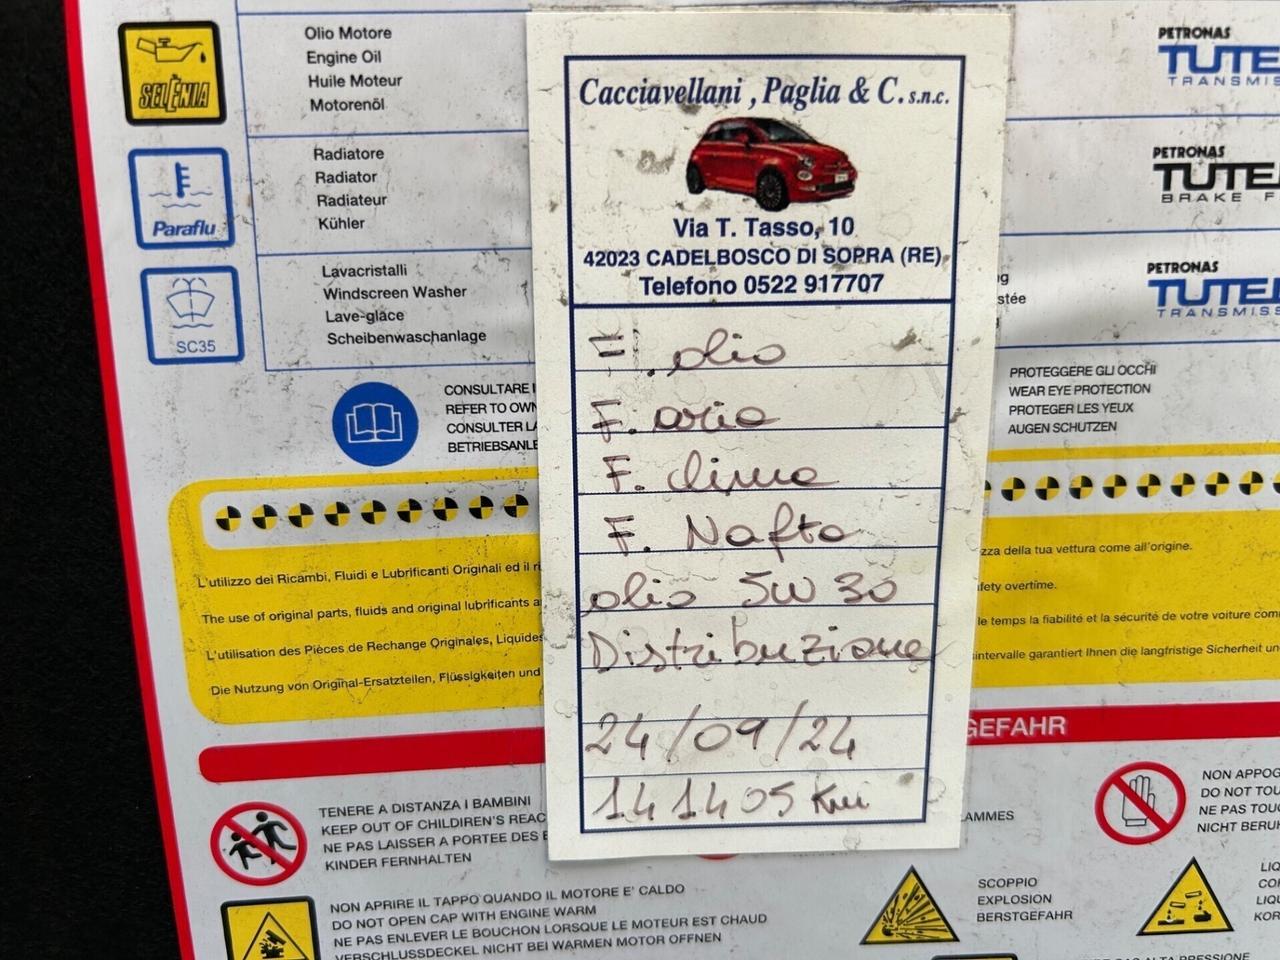 SELÈNIA
Olio Motore
Engine Oil
Huile Moteur
Motorenöl
Paraflu
Radiatore
Radiator
Radiateur
Kühler
SC35
Lavacristalli
Windscreen Washer
Lave-glace
Scheibenwaschanlage
CONSULTARE
REFER TO
CONSULTER
Cacciavellani , Paglia & C. s.n.c.
Via T. Tasso, 10
42023 CADELBOSCO DI SOPRA (RE)
Telefono 0522 917707
F. olio
F. aria
F. clima
F. Nafta
olio 5W 30
Distribuzione
24/09/24
141405 Km
PETRONAS
PETRONAS
BRAKE
PETRONAS
PROTEGGERE GLI OCCHI
WEAR EYE PROTECTION
PROTEGER LES YEUX
AUGEN SCHUTZEN
L'utilizzo dei Ricambi, Fluidi e Lubrificanti Originali ed il
The use of original parts, fluids and original lubrificants
L'utilisation des Pièces de Rechange Originales, Liquides
Die Nutzung von Original-Ersatzteilen, Flüssigkeiten und
della tua vettura come all'origine.
overtime.
le temps la fiabilité et la sécurité de votre voiture
garantiert Ihnen die langfristige Sicherheit
GEFAHR
TENERE A DISTANZA I BAMBINI
KEEP OUT OF CHILDREN'S
NE PAS LAISSER A PORTEE DES
KINDER FERNHALTEN
NON APRIRE IL TAPPO QUANDO IL MOTORE E' CALDO
DO NOT OPEN CAP WITH ENGINE WARM
NE PAS ENLEVER LE BOUCHON LORSQUE LE MOTEUR EST CHAUD
VERSCHLUSSDECKEL NICHT BEI WARMEN MOTOR OFFNEN
NON
DO NOT
NE PAS
NICHT
SCOPPIO
EXPLOSION
BERSTGEFAHR